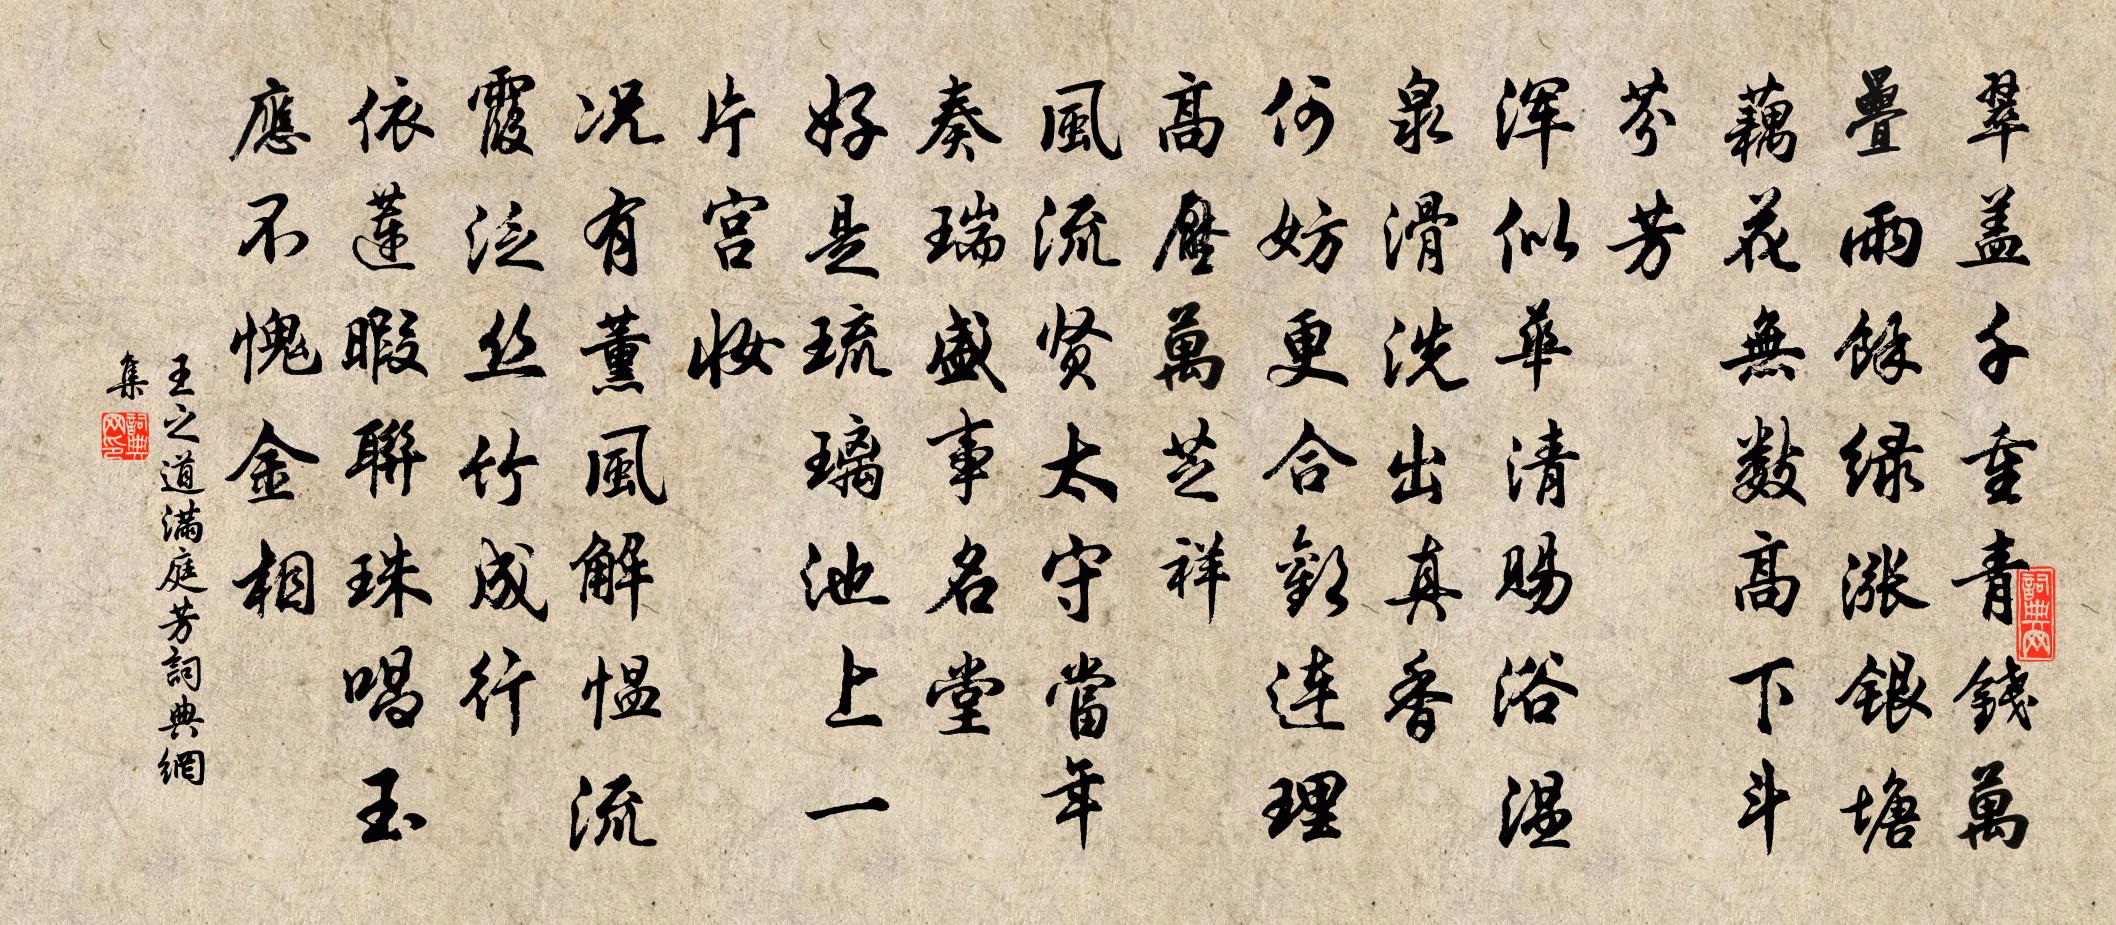 翠盖千重青錢萬
疊雨餘绿漲銀塘
藕花無數高下斗
芬芳
浑似華清賜浴温
泉滑洗出真香
何妨更合歡连理
高壓萬芝祥
風流贤太守當年
奏瑞盛事名堂
好是琉璃池上一
片宫妆
况有薰風解愠流
霞泛丝竹成行
依莲暇聯珠唱玉
應不愧金相
王之道满庭芳詞典網
集
詞典网
詞典网印